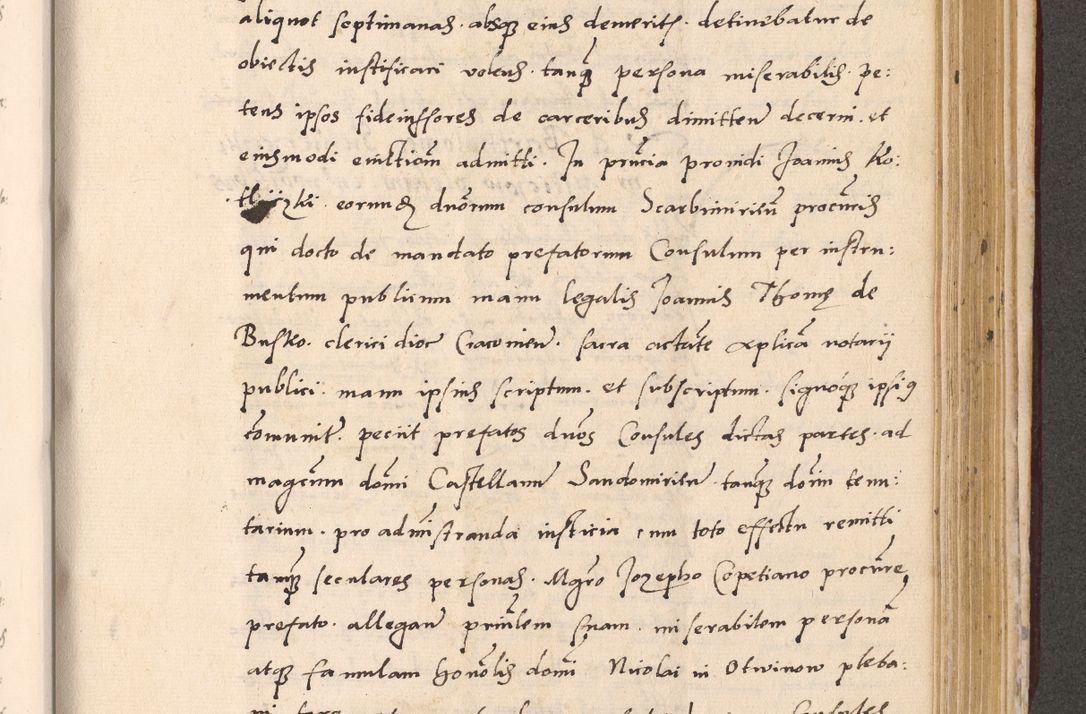 aliquot septimanas. absq eius demerito. detinebatur de
obiectis iustificari volens. tanq persona miserabilis. pe:
tens ipsos fideiussores de carceribus dimitten decerni. et
eiusmodi evictiom admitti. In prncia providi Joannis Ko:
eorundem duorum consulum Scarbimirien procuris
qui docto de mandato prefatorum Consulum per instru:
mentum publicum manu legalis Joannis Thome de
Busko. clerici dioc Cracovien. sacra actate aplica notarii
publici. manu ipsius scriptum. et subscriptum. signoq ipsius
comunit. peciit prefatos duos Consules dictas partes. ad
magcum domi Castellanu Sandomirien. tanq domi tenu:
tarium. pro administranda iusticia cum toto effectu remitti
tanq seculares personas. Mgro Jozepho Copetiano procure
prefato. allegan prinlem suam. miserabilem persona
atq famulam honolis domi Nicolai in Otwinow pleba: